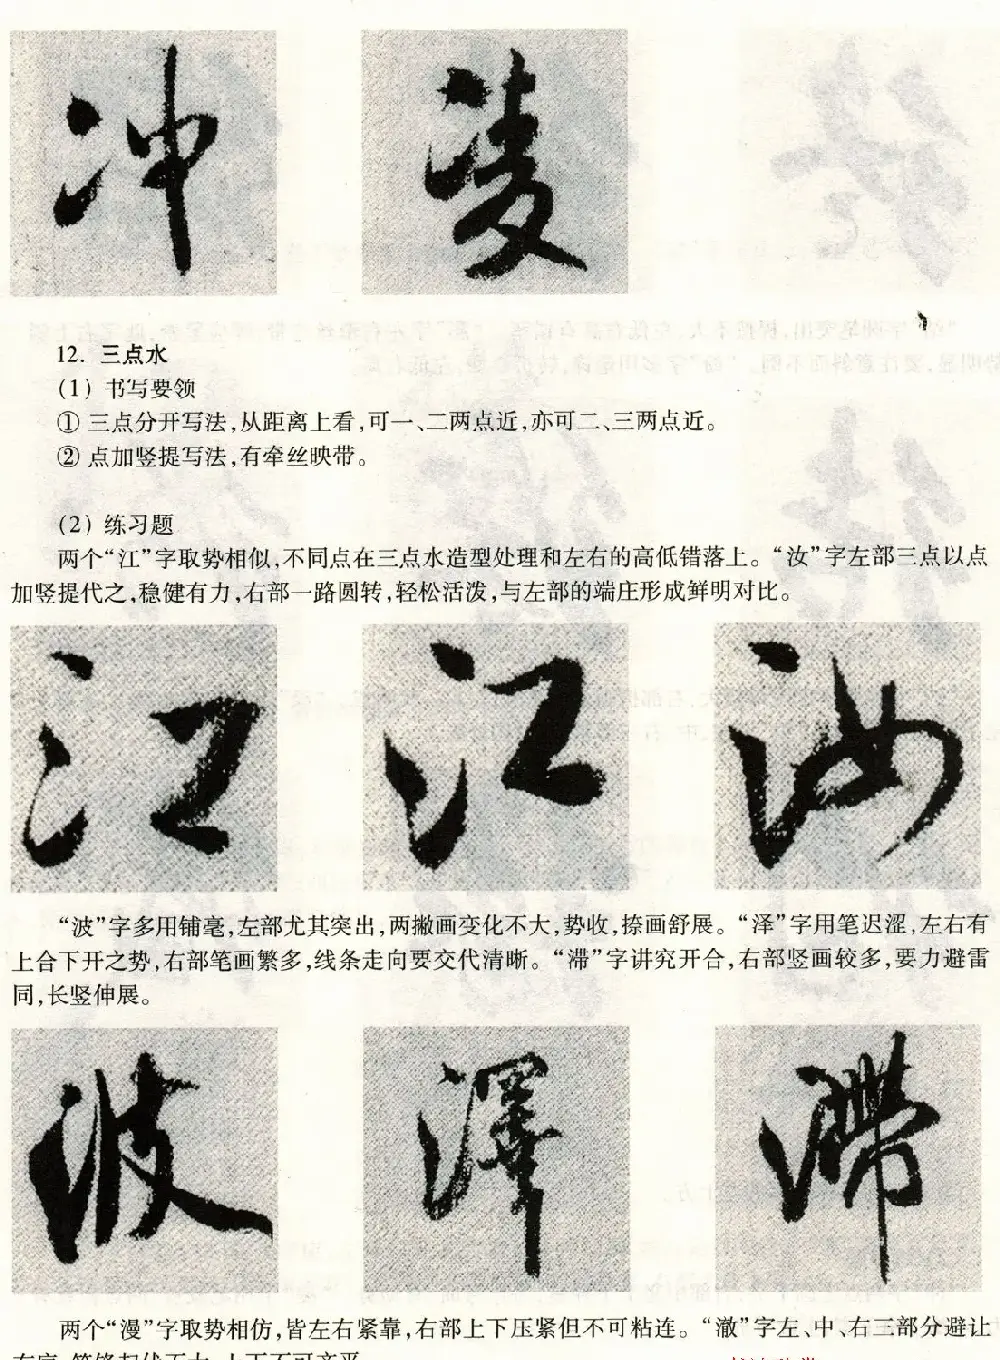 冲 凌
12. 三点水
(1) 书写要领
① 三点分开写法,从距离上看,可一、二两点近,亦可二、三两点近。
② 点加竖提写法,有牵丝映带。
(2) 练习题
两个“江”字取势相似,不同点在三点水造型处理和左右的高低错落上。“汝”字左部三点以点
加竖提代之,稳健有力,右部一路圆转,轻松活泼,与左部的端庄形成鲜明对比。
江 江 汝
“波”字多用铺毫,左部尤其突出,两撇画变化不大,势收,捺画舒展。“泽”字用笔迟涩,左右有
上合下开之势,右部笔画繁多,线条走向要交代清晰。“滞”字讲究开合,右部竖画较多,要力避雷
同,长竖伸展。
波 澤 滯
两个“漫”字取势相仿,皆左右紧靠,右部上下压紧但不可粘连。“澈”字左、中、右三部分避让